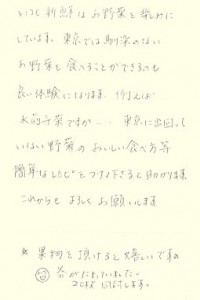 いつも新鮮なお野菜を楽しみに
しています。東京では馴染のない
お野菜を食べることができるのも
良い体験になります。例えば
水前寺菜ですか・・東京に出回って
いない野菜のおいしい食べ方等
簡単なレシピをつけて下さると助かります
これからもよろしくお願いします
* 果物を頂けると嬉しいです
が入っていました。